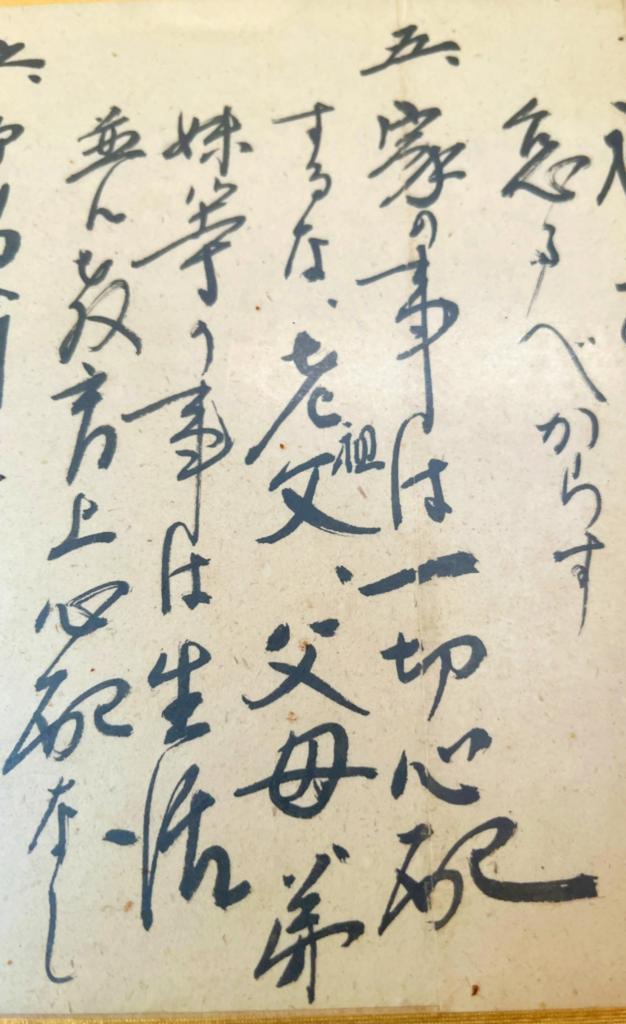 怠るべからず
五、家の事は一切心配
するな、老祖父、父母弟
妹等の事は生活
並に教育上心配なし